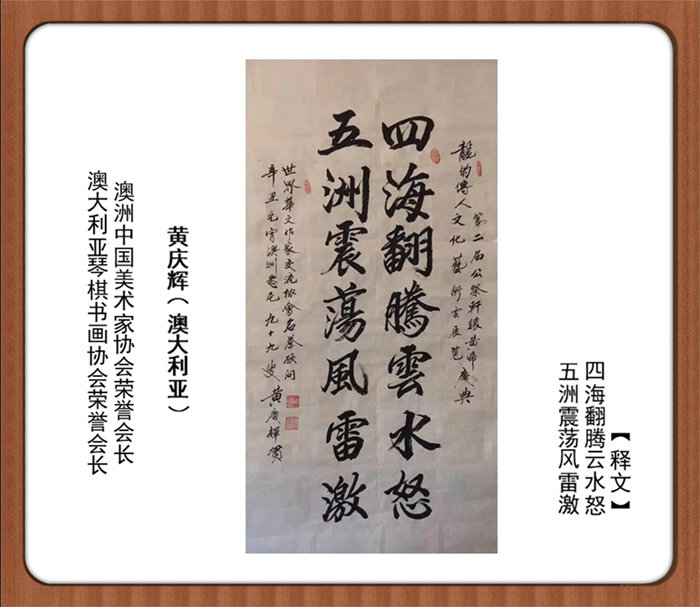 【释文】
四海翻腾云水怒
五洲震荡风雷激
第二届公祭軒轅黃帝慶典
龍的傳人文化藝術云展覽
四海翻騰雲水怒
五洲震蕩風雷激
世界華文作家交流協會名譽顧問
辛丑元宵澳洲悉尼九十九叟黃慶輝賀
黄庆辉（澳大利亚）
澳洲中国美术家协会荣誉会长
澳大利亚琴棋书画协会荣誉会长